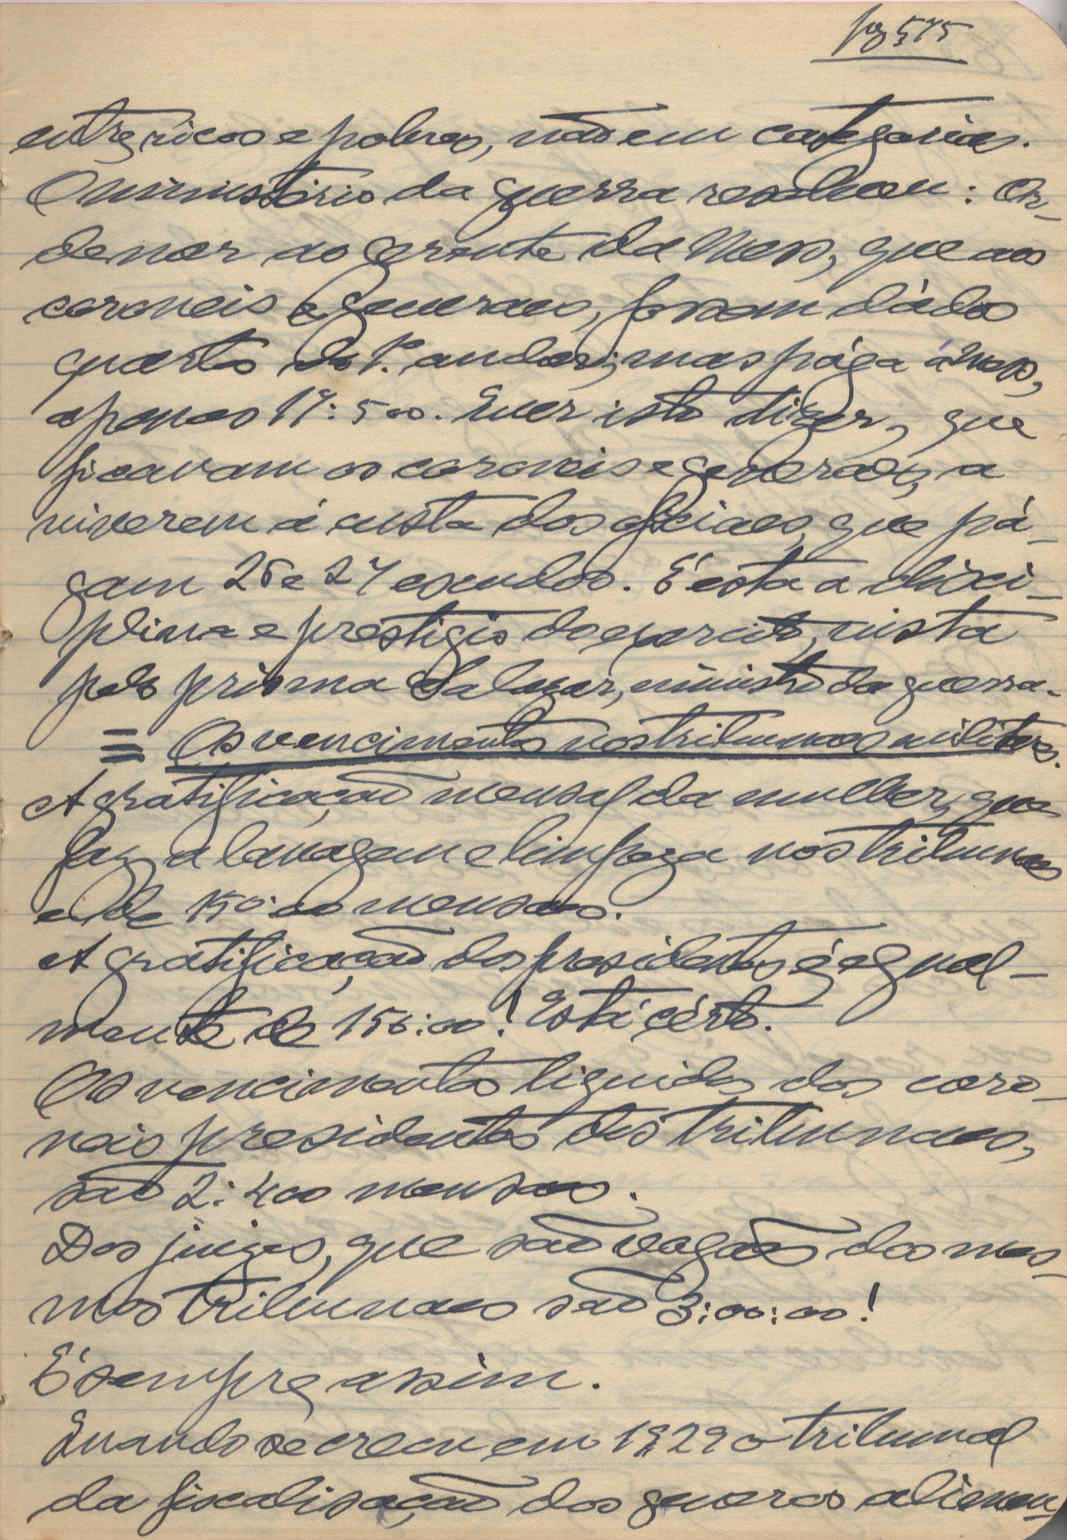 pag 575
entre ricos e pobres, não em categorias.
O ministério da guerra resolveu: Or-
denar ao gerente da Mess, que aos
coroneis e generaes, fossem dádo
quarto do 1º andar, mas pága á Mess,
apenas 17:500. Quer isto dizer, que
ficavam os coroneis e generaes, a
viverem á custa dos oficiaes, que pá-
gam 25 e 27 escudos. É esta a disci-
plina e prestigio do exercito, vista
pelo prisma Salazar, ministro da guerra.
= Os vencimentos nos tribunaes militares.
A gratificação mensal da mulher, que
faz a lavagem e limpeza nos tribunaes
é de 150:00 mensaes.
A gratificação dos presidentes, é egual-
mente de 150:00! Está cérto.
Os vencimentos liquidos dos coro-
neis presidentes dos tribunaes,
são 2:400 mensaes.
Dos juizes, que são vogaes dos mes-
mos tribunaes são 3:00:00!
É sempre assim.
Quando se creou em 1929 o tribunal
da fiscalisação dos generos alimen-